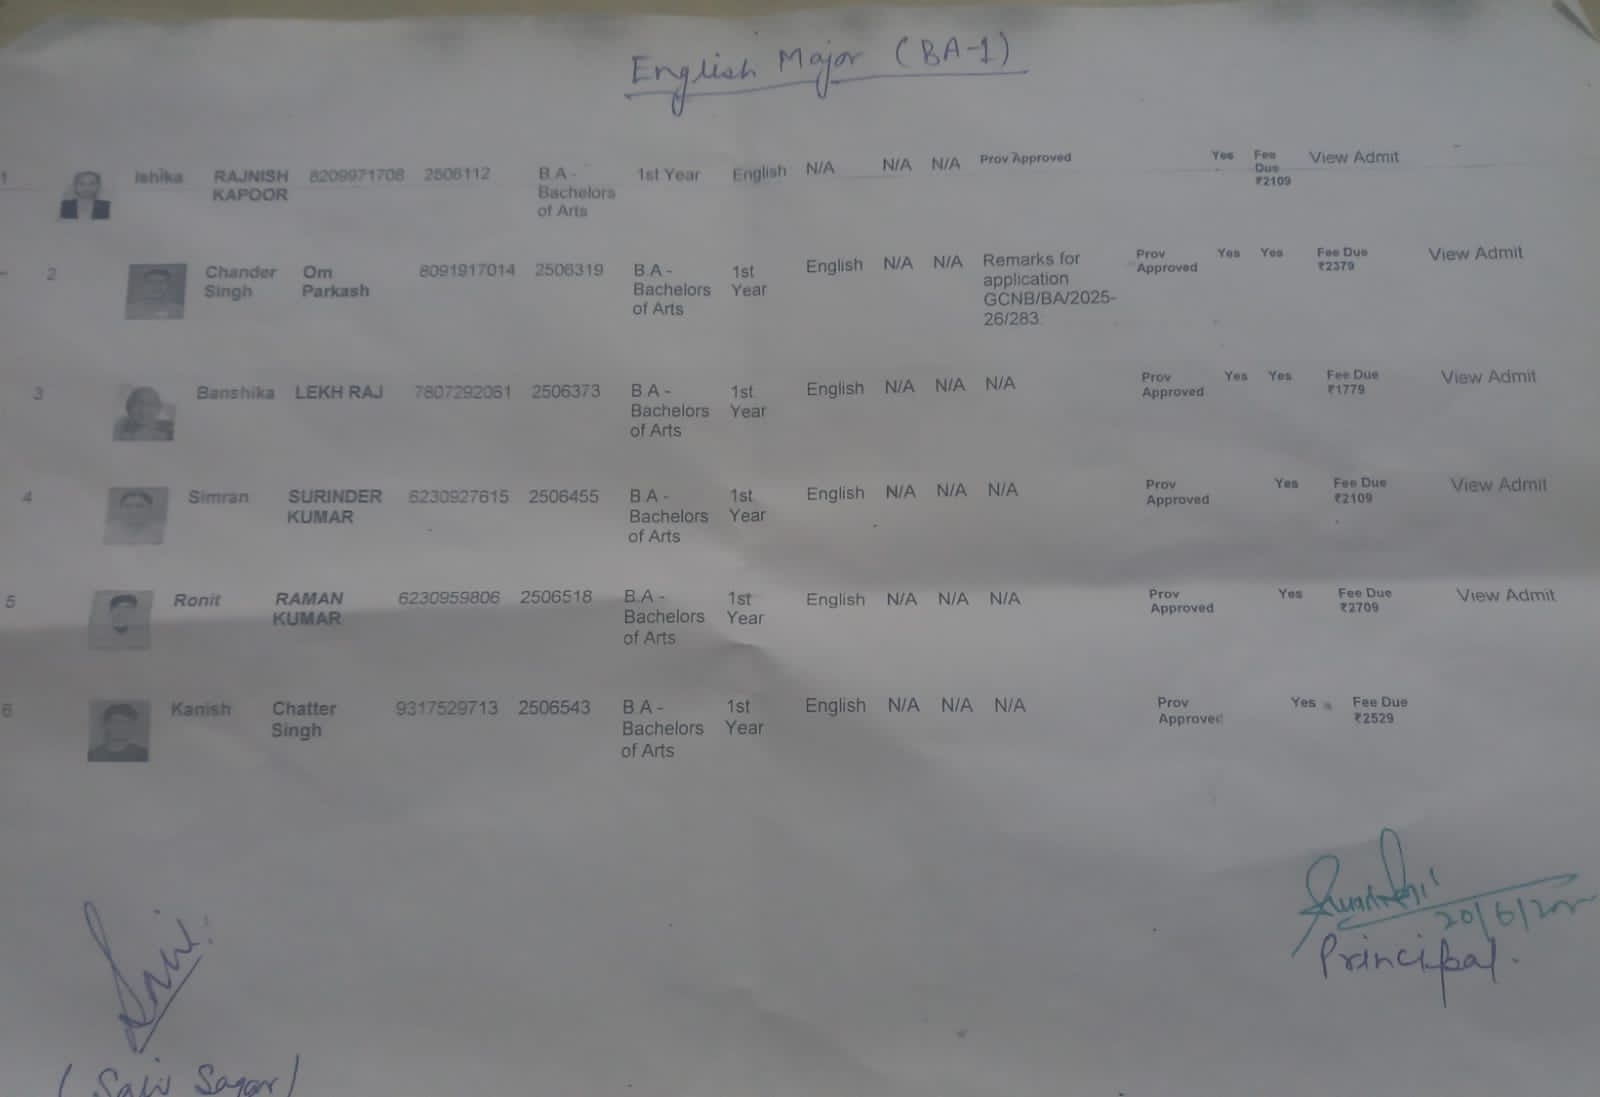 English Major (BA-1)
1 Ishika RAJNISH KAPOOR 8209971708 2506112 B.A - Bachelors of Arts 1st Year English N/A N/A N/A Prov Approved Yes Fee Due ₹2109 View Admit
2 Chander Singh Om Parkash 8091917014 2506319 B.A - Bachelors of Arts 1st Year English N/A N/A Remarks for application GCNB/BA/2025-26/283: Prov Approved Yes Yes Fee Due ₹2379 View Admit
3 Banshika LEKH RAJ 7807292061 2506373 B.A - Bachelors of Arts 1st Year English N/A N/A N/A Prov Approved Yes Yes Fee Due ₹1779 View Admit
4 Simran SURINDER KUMAR 6230927615 2506455 B.A - Bachelors of Arts 1st Year English N/A N/A N/A Prov Approved Yes Fee Due ₹2109 View Admit
5 Ronit RAMAN KUMAR 6230959806 2506518 B.A - Bachelors of Arts 1st Year English N/A N/A N/A Prov Approved Yes Fee Due ₹2709 View Admit
6 Kanish Chatter Singh 9317529713 2506543 B.A - Bachelors of Arts 1st Year English N/A N/A N/A Prov Approved Yes Fee Due ₹2529
20/6/202
Principal.
Sagar)